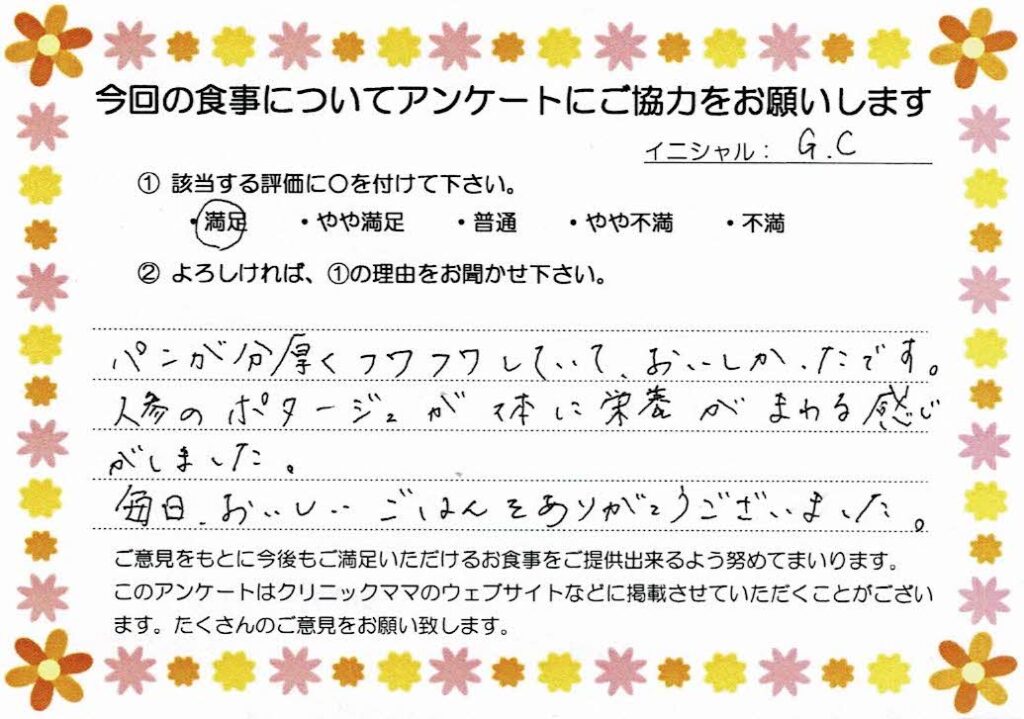 今回の食事についてアンケートにご協力をお願いします
イニシャル： G.C
① 該当する評価に○を付けて下さい。
・満足 ・やや満足 ・普通 ・やや不満 ・不満
② よろしければ、①の理由をお聞かせ下さい。
パンが分厚くフワフワしていて、おいしかったです。
人参のポタージュが体に栄養がまわる感じ
がしました。
毎日、おいしいごはんをありがとうございました。
ご意見をもとに今後もご満足いただけるお食事をご提供出来るよう努めてまいります。
このアンケートはクリニックママのウェブサイトなどに掲載させていただくことがござい
ます。たくさんのご意見をお願い致します。